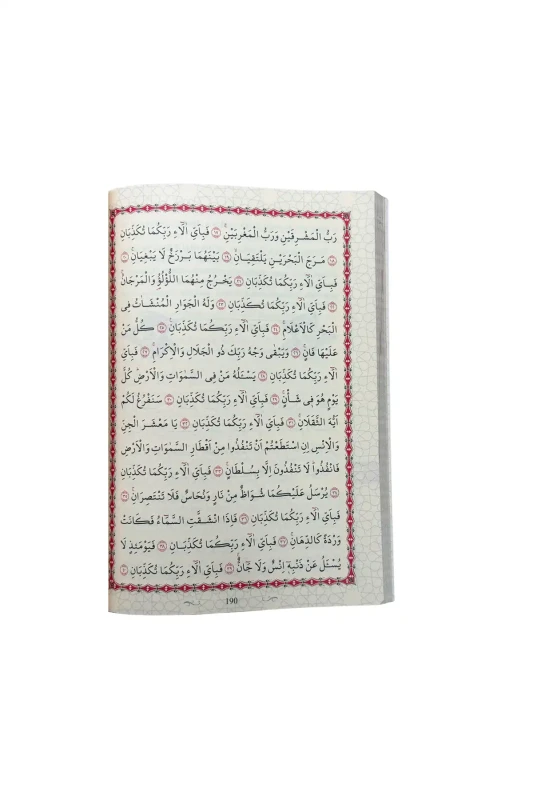 رَبُّ الْمَشْرِقَيْنِ وَرَبُّ الْمَغْرِبَيْنِۚ ﴿١٧﴾ فَبِاَيِّ اٰلَٓاءِ رَبِّكُمَا تُكَذِّبَانِ
﴿١٨﴾ مَرَجَ الْبَحْرَيْنِ يَلْتَقِيَانِۙ ﴿١٩﴾ بَيْنَهُمَا بَرْزَخٌ لَا يَبْغِيَانِۚ ﴿٢٠﴾
فَبِاَيِّ اٰلَٓاءِ رَبِّكُمَا تُكَذِّبَانِ ﴿٢١﴾ يَخْرُجُ مِنْهُمَا اللُّؤْلُؤُ وَالْمَرْجَانُۚ
﴿٢٢﴾ فَبِاَيِّ اٰلَٓاءِ رَبِّكُمَا تُكَذِّبَانِ ﴿٢٣﴾ وَلَهُ الْجَوَارِ الْمُنْشَاٰتُ فِي
الْبَحْرِ كَالْاَعْلَامِۚ ﴿٢٤﴾ فَبِاَيِّ اٰلَٓاءِ رَبِّكُمَا تُكَذِّبَانِ۟ ﴿٢٥﴾ كُلُّ مَنْ
عَلَيْهَا فَانٍۚ ﴿٢٦﴾ وَيَبْقٰى وَجْهُ رَبِّكَ ذُو الْجَلَالِ وَالْاِكْرَامِۚ ﴿٢٧﴾ فَبِاَيِّ
اٰلَٓاءِ رَبِّكُمَا تُكَذِّبَانِ ﴿٢٨﴾ يَسْـَٔلُهُ مَنْ فِي السَّمٰوَاتِ وَالْاَرْضِۜ كُلَّ
يَوْمٍ هُوَ فِي شَأْنٍۚ ﴿٢٩﴾ فَبِاَيِّ اٰلَٓاءِ رَبِّكُمَا تُكَذِّبَانِ ﴿٣٠﴾ سَنَفْرُغُ لَكُمْ
اَيُّهَ الثَّقَلَانِۚ ﴿٣١﴾ فَبِاَيِّ اٰلَٓاءِ رَبِّكُمَا تُكَذِّبَانِ ﴿٣٢﴾ يَا مَعْشَرَ الْجِنِّ
وَالْاِنْسِ اِنِ اسْتَطَعْتُمْ اَنْ تَنْفُذُوا مِنْ اَقْطَارِ السَّمٰوَاتِ وَالْاَرْضِ
فَانْفُذُواۜ لَا تَنْفُذُونَ اِلَّا بِسُلْطَانٍۚ ﴿٣٣﴾ فَبِاَيِّ اٰلَٓاءِ رَبِّكُمَا تُكَذِّبَانِ
﴿٣٤﴾ يُرْسَلُ عَلَيْكُمَا شُوَاظٌ مِنْ نَارٍ وَنُحَاسٌ فَلَا تَنْتَصِرَانِۚ ﴿٣٥﴾
فَبِاَيِّ اٰلَٓاءِ رَبِّكُمَا تُكَذِّبَانِ ﴿٣٦﴾ فَاِذَا انْشَقَّتِ السَّمَٓاءُ فَكَانَتْ
وَرْدَةً كَالدِّهَانِۚ ﴿٣٧﴾ فَبِاَيِّ اٰلَٓاءِ رَبِّكُمَا تُكَذِّبَانِ ﴿٣٨﴾ فَيَوْمَئِذٍ لَا
يُسْـَٔلُ عَنْ ذَنْبِهٖٓ اِنْسٌ وَلَا جَٓانٌّۚ ﴿٣٩﴾ فَبِاَيِّ اٰلَٓاءِ رَبِّكُمَا تُكَذِّبَانِ ﴿٤٠﴾
190